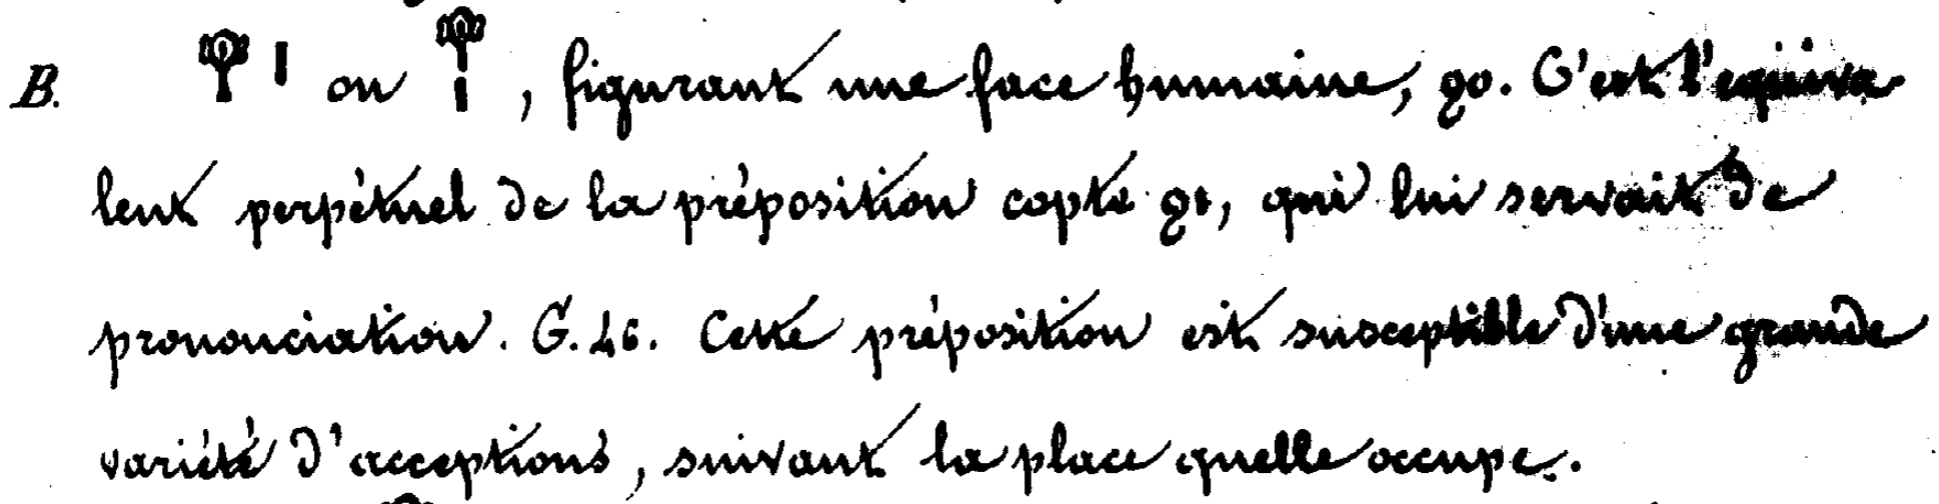 B. 𓁷 𓏤 ou 𓁷𓏤, figurant une face humaine, ϩο. C'est l'equiva
lent perpétuel de la préposition copte ϩι, qui lui servait de
prononciation. G. 46. Cette préposition est susceptible d'une grande
variété d'acceptions, suivant la place quelle occupe.